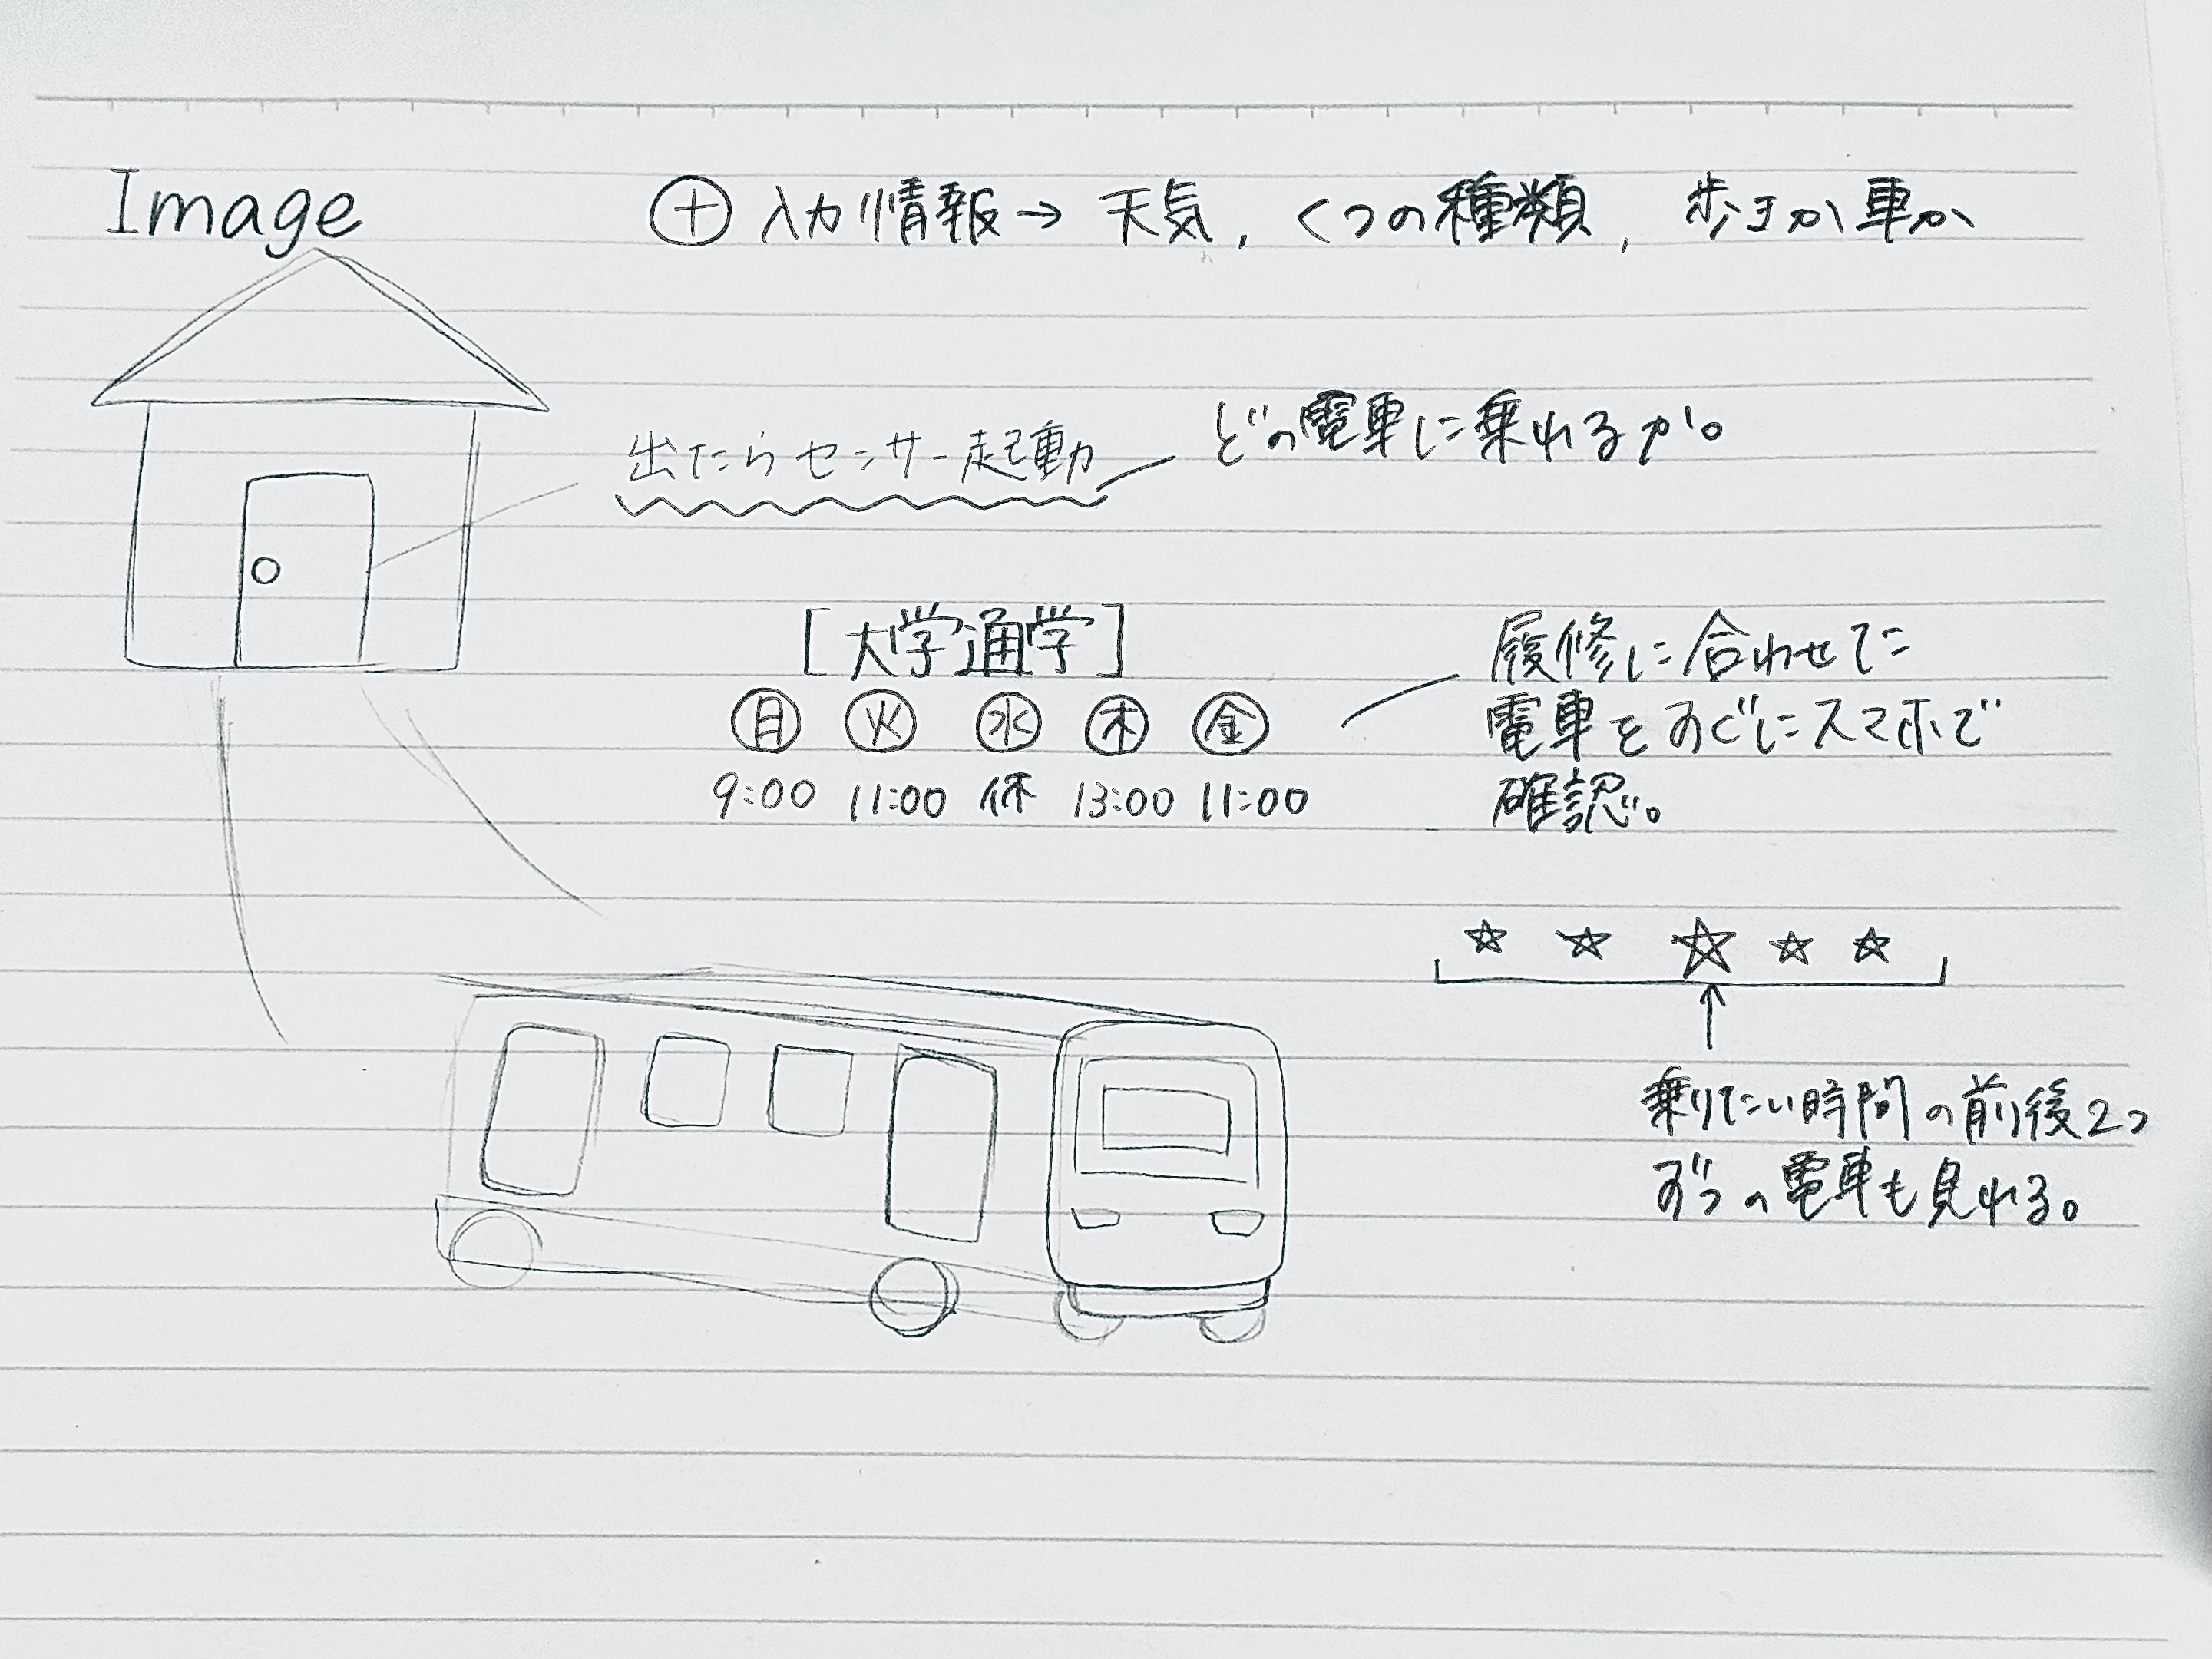 Image
⊕ 入力情報→ 天気, くつの種類, 歩きか車か
出たらセンサー起動
どの電車に乗れるか。
[大学通学]
月 火 水 木 金
9:00 11:00 休 13:00 11:00
履修に合わせた
電車をすぐにスマホで
確認。
☆ ☆ ☆ ☆ ☆
↑
乗りたい時間の前後2つ
ずつの電車も見れる。